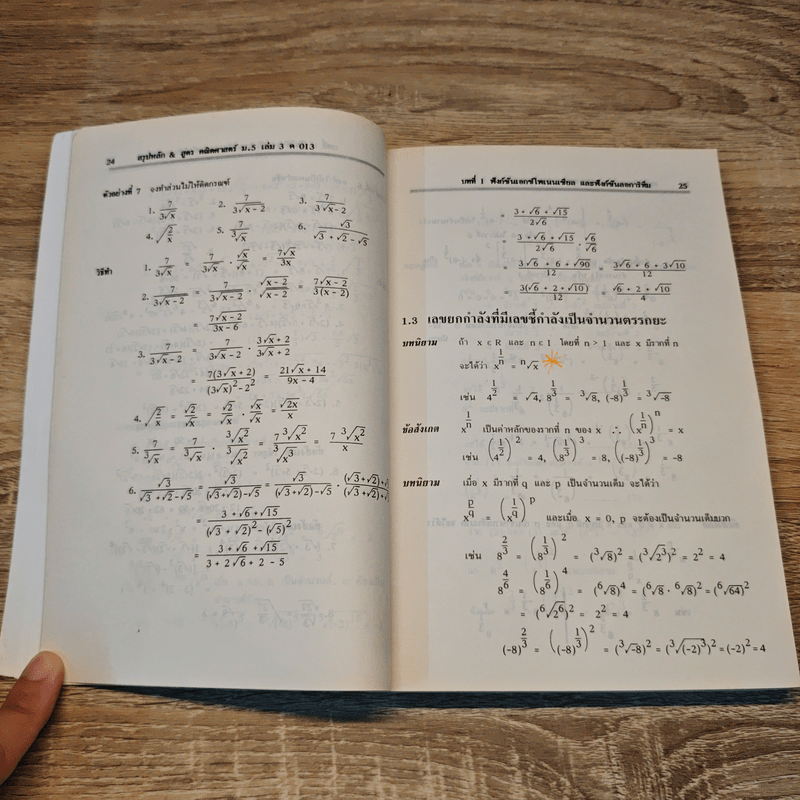 24 สรุปหลัก & สูตร คณิตศาสตร์ ม.5 เล่ม 3 ค 013
ตัวอย่างที่ 7 จงทำส่วนไม่ให้ติดกรณฑ์
1. 7/(3√x) 2. 7/(3√(x-2)) 3. 7/(3√x-2)
4. √(2/x) 5. 7/(³√x) 6. √3/(√3 + √2 - √5)
วิธีทำ 1. 7/(3√x) = 7/(3√x) · √x/√x = 7√x/3x
2. 7/(3√(x-2)) = 7/(3√(x-2)) · √(x-2)/√(x-2) = 7√(x-2)/(3(x-2))
= 7√(x-2)/(3x-6)
3. 7/(3√x-2) = 7/(3√x-2) · (3√x+2)/(3√x+2)
= 7(3√x+2)/((3√x)²-2²) = (21√x+14)/(9x-4)
4. √(2/x) = √2/√x = √2/√x · √x/√x = √(2x)/x
5. 7/(³√x) = 7/(³√x) · ³√(x²)/³√(x²) = 7 ³√(x²)/³√(x³) = 7 ³√(x²)/x
6. √3/(√3 + √2 - √5) = √3/((√3+√2)-√5) = √3/((√3+√2)-√5) · ((√3+√2)+/((√3+√2)+
= (3 + √6 + √15)/((√3 + √2)² - (√5)²)
= (3 + √6 + √15)/(3 + 2√6 + 2 - 5)
บทที่ 1 ฟังก์ชันเอกซ์โพเนนเชียล และฟังก์ชันลอการิทึม 25
= (3 + √6 + √15)/(2√6)
= (3 + √6 + √15)/(2√6) · √6/√6
= (3√6 + 6 + √90)/12 = (3√6 + 6 + 3√10)/12
= 3(√6 + 2 + √10)/12 = (√6 + 2 + √10)/4
1.3 เลขยกกำลังที่มีเลขชี้กำลังเป็นจำนวนตรรกยะ
บทนิยาม ถ้า x ∈ R และ n ∈ I โดยที่ n > 1 และ x มีรากที่ n
จะได้ว่า x^(1/n) = ⁿ√x
เช่น 4^(1/2) = √4, 8^(1/3) = ³√8, (-8)^(1/3) = ³√-8
ข้อสังเกต x^(1/n) เป็นค่าหลักของรากที่ n ของ x ∴ (x^(1/n))^n = x
เช่น (4^(1/2))² = 4, (8^(1/3))³ = 8, ((-8)^(1/3))³ = -8
บทนิยาม เมื่อ x มีรากที่ q และ p เป็นจำนวนเต็ม จะได้ว่า
x^(p/q) = (x^(1/q))^p และเมื่อ x = 0, p จะต้องเป็นจำนวนเต็มบวก
เช่น 8^(2/3) = (8^(1/3))² = (³√8)² = (³√(2³))² = 2² = 4
8^(4/6) = (8^(1/6))⁴ = (⁶√8)⁴ = (⁶√8 · ⁶√8)² = (⁶√64)²
= (⁶√(2⁶))² = 2² = 4
(-8)^(2/3) = ((-8)^(1/3))² = (³√-8)² = (³√((-2)³))² = (-2)² = 4